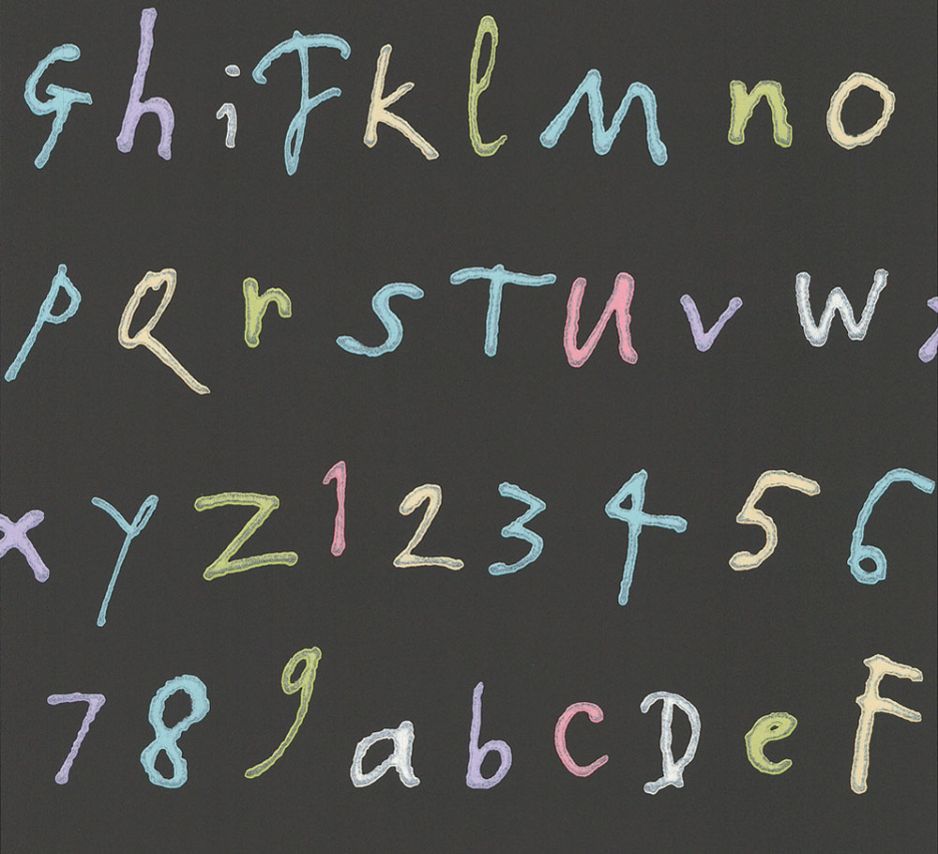 G h i J k l m n o
p Q r s T U v w x
x y z 1 2 3 4 5 6
7 8 9 a b c D e F